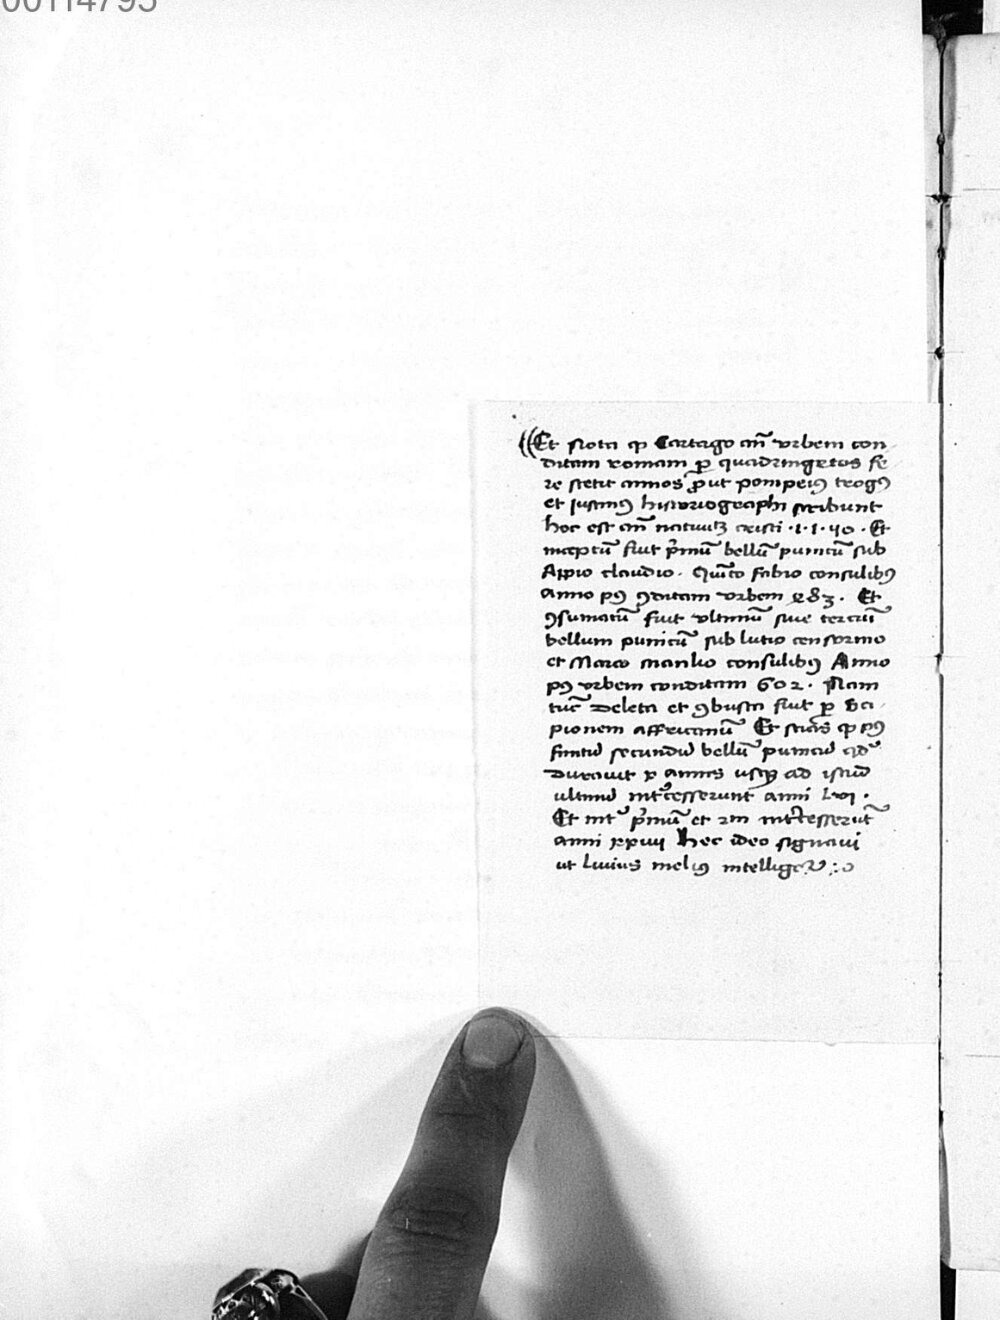 00114795
Et Nota ꝙ Cartago an̄ vrbem con
ditam romam ꝑ quadringetos fe
re stetit annos ꝓut pompeiꝰ trogꝰ
et Justinꝰ historiographi scribunt
hoc est an̄ xristi Et
inceptū fuit p̄mū bellū punicū sub
Appio claudio. Quīto fabio consulibꝰ
anno pꝰ ꝯditam vrbem 283. Et
ꝯsumatū fuit vltimū siue terciū
bellum punicū sub lucio censorino
et Marco manlio consulibꝰ Anno
pꝰ vrbem conditam 602. Nam
tūc deleta et ꝯbusta fuit ꝑ Sci
pionem affricanū Et ꝙ pꝰ
finitū secundū bellū punicū qd̄
durauit annis usqꝫ ad istud
ultimū int̄cesserunt anni Lvi.
Et int̄ p̄mū et 2m int̄cesserūt
anni xxiiij Hec ideo signaui
ut Liuius meliꝰ